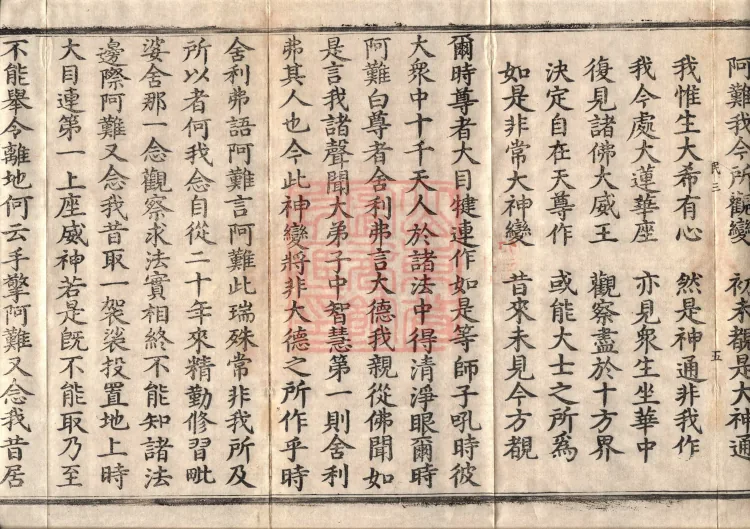 阿難我今所觀變　初未覩是大神通
民三　五
我惟生大希有心　然是神通非我作
我今處大蓮華座　亦見衆生坐華中
復見諸佛大威王　觀察盡於十方界
決定自在天尊作　或能大士之所爲
如是非常大神變　昔來未見今方覩
爾時尊者大目犍連作如是等師子吼時彼
大衆中十千天人於諸法中得清淨眼爾時
阿難白尊者舍利弗言大德我親從佛聞如
是言我諸聲聞大弟子中智慧第一則舍利
弗其人也今此神變將非大德之所作乎時
舍利弗語阿難言阿難此瑞殊常非我所及
所以者何我念自從二十年來精勤修習毗
婆舍那一念觀察求法實相終不能知諸法
邊際阿難又念我昔取一袈裟投置地上時
大目連第一上座威神若是旣不能取乃至
不能舉令離地何云手擎阿難又念我昔居